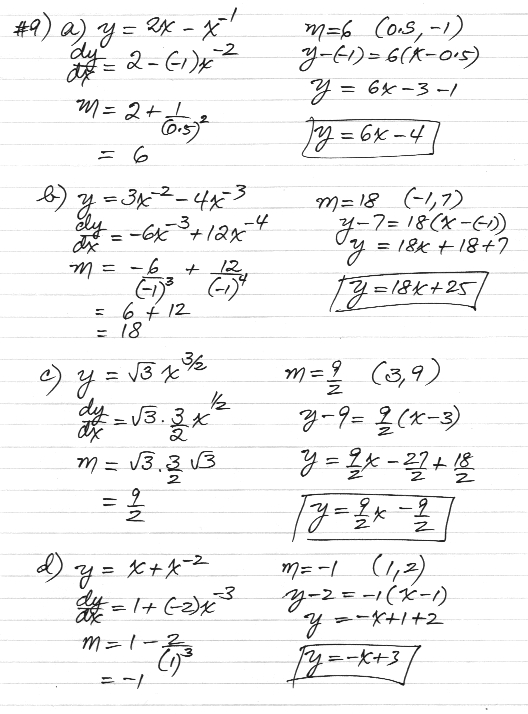 #9) a) y = 2x - x⁻¹
dy/dx = 2 - (-1)x⁻²
m = 2 + 1/(0.5)²
= 6
m=6 (0.5, -1)
y-(-1) = 6(x-0.5)
y = 6x-3-1
y = 6x-4
b) y = 3x⁻² - 4x⁻³
dy/dx = -6x⁻³ + 12x⁻⁴
m = -6/(-1)³ + 12/(-1)⁴
= 6 + 12
= 18
m=18 (-1,7)
y-7 = 18(x-(-1))
y = 18x + 18+7
y = 18x+25
c) y = √3 x^(3/2)
dy/dx = √3 · 3/2 x^(1/2)
m = √3 · 3/2 √3
= 9/2
m = 9/2 (3,9)
y-9 = 9/2 (x-3)
y = 9/2 x - 27/2 + 18/2
y = 9/2 x - 9/2
d) y = x + x⁻²
dy/dx = 1 + (-2)x⁻³
m = 1 - 2/(1)³
= -1
m = -1 (1,2)
y-2 = -1(x-1)
y = -x+1+2
y = -x+3